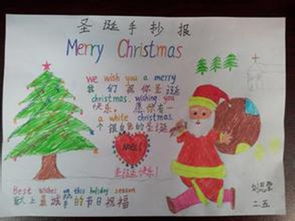 圣诞手抄报
Merry Christmas
we wish you a merry
我们祝你圣诞
christmas, wishing you
快乐，愿你有一
a white christmas.
个银白的圣诞
圣诞快乐！
Best wishes on this holiday season
献上真诚的节日祝福
二.五